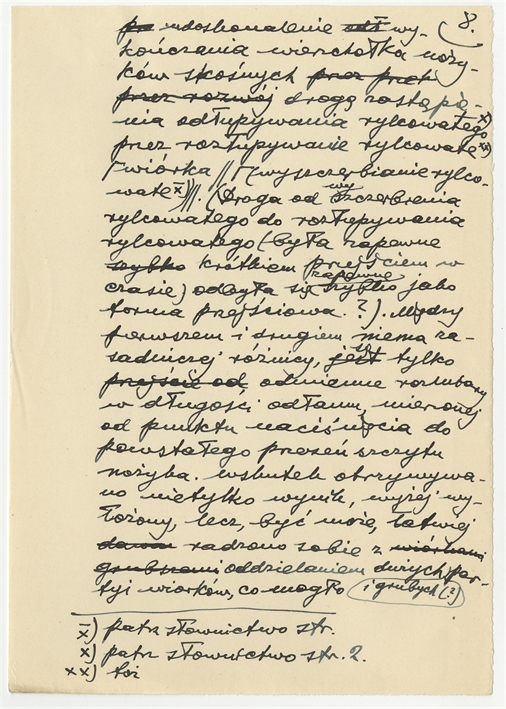 8.
udoskonalenie wy-
kończania wierzchołka noży-
ków skośnych
drogą zastąpie-
nia odłupywania rylcowatego x)
przez rozłupywanie rylcowate xx)
[wiórka // [wyszczerbianie rylco-
wate x)]//. (Droga od wyszczerbienia
rylcowatego do rozłupywania
rylcowatego (była zapewne
krótkiem przejściem w
czasie) odbyła się zapewne szybko jako
forma przejściowa ?). Między
pierwszem i drugiem niema za-
sadniczej różnicy, są tylko
odmienne rozmiary
w długości odłamu, mierzonej
od punktu naciśnięcia do
powstałego przezeń szczytu
nożyka. Wskutek otrzymywa-
no nietylko wynik, wyżej wy-
łożony, lecz, być może, łatwiej
radzono sobie z
oddzielaniem dużych par-
tyj wiórków, co mogło i grubych (?)
x) patrz słownictwo str.
x) patrz słownictwo str. 2.
xx) toż